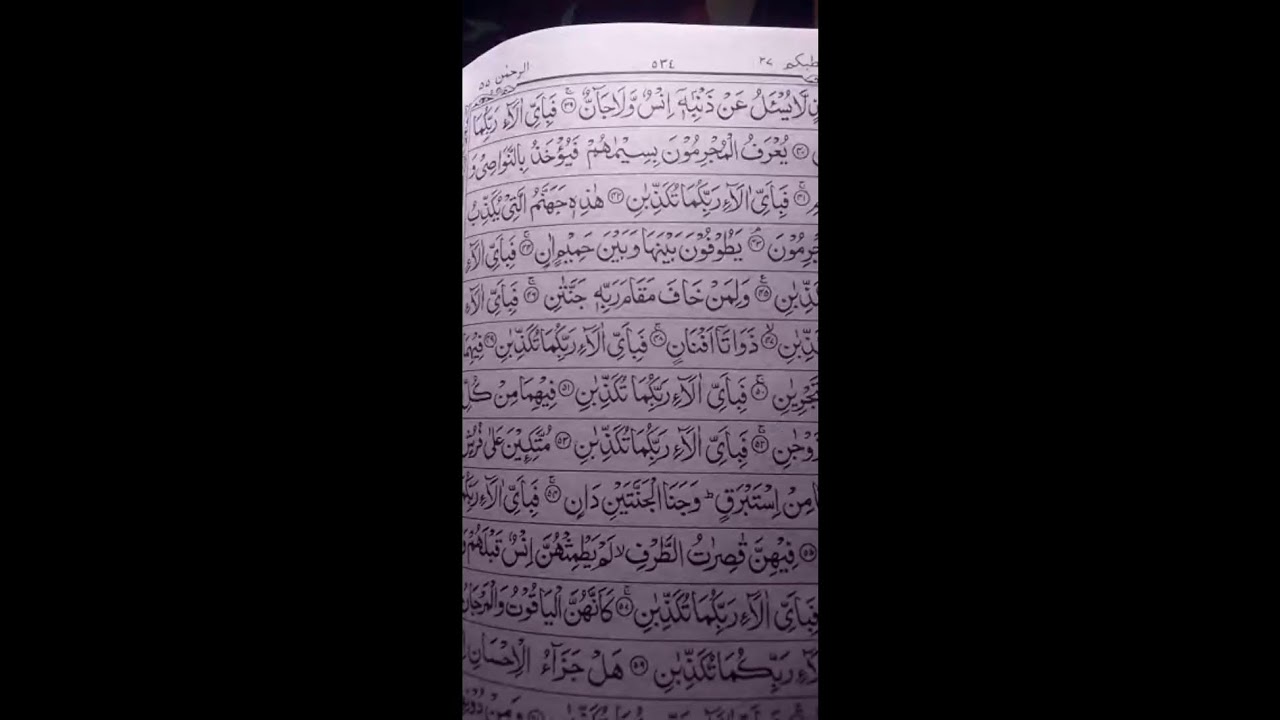 الرحمن ٥٥ ٥٣٤ ٢٧
لَّا يُسْئَلُ عَنْ ذَنْۢبِهٖۤ اِنْسٌ وَّلَا جَآنٌّ ۚ﴿٣٩﴾ فَبِاَيِّ اٰلَآءِ رَبِّكُمَا
﴿٤٠﴾ يُعْرَفُ الْمُجْرِمُوْنَ بِسِيْمٰهُمْ فَيُؤْخَذُ بِالنَّوَاصِيْ وَ
ۚ﴿٤١﴾ فَبِاَيِّ اٰلَآءِ رَبِّكُمَا تُكَذِّبٰنِ ﴿٤٢﴾ هٰذِهٖ جَهَنَّمُ الَّتِيْ يُكَذِّبُ
جْرِمُوْنَ ۘ﴿٤٣﴾ يَطُوْفُوْنَ بَيْنَهَا وَبَيْنَ حَمِيْمٍ اٰنٍ ۚ﴿٤٤﴾ فَبِاَيِّ اٰلَآءِ
كَذِّبٰنِ ۠﴿٤٥﴾ وَلِمَنْ خَافَ مَقَامَ رَبِّهٖ جَنَّتٰنِ ۚ﴿٤٦﴾ فَبِاَيِّ اٰلَآءِ
ذِّبٰنِ ۙ﴿٤٧﴾ ذَوَاتَاۤ اَفْنَانٍ ۚ﴿٤٨﴾ فَبِاَيِّ اٰلَآءِ رَبِّكُمَا تُكَذِّبٰنِ ﴿٤٩﴾ فِيْهِمَا
تَجْرِيٰنِ ۚ﴿٥٠﴾ فَبِاَيِّ اٰلَآءِ رَبِّكُمَا تُكَذِّبٰنِ ﴿٥١﴾ فِيْهِمَا مِنْ كُلِّ
زَوْجٰنِ ۚ﴿٥٢﴾ فَبِاَيِّ اٰلَآءِ رَبِّكُمَا تُكَذِّبٰنِ ﴿٥٣﴾ مُتَّكِـِٕيْنَ عَلٰى فُرُشٍ
مِنْ اِسْتَبْرَقٍ ؕ وَجَنَا الْجَنَّتَيْنِ دَانٍ ۚ﴿٥٤﴾ فَبِاَيِّ اٰلَآءِ رَبِّكُمَا
﴿٥٥﴾ فِيْهِنَّ قٰصِرٰتُ الطَّرْفِ ۙ لَمْ يَطْمِثْهُنَّ اِنْسٌ قَبْلَهُمْ وَ
فَبِاَيِّ اٰلَآءِ رَبِّكُمَا تُكَذِّبٰنِ ۚ﴿٥٧﴾ كَاَنَّهُنَّ الْيَاقُوْتُ وَالْمَرْجَانُ
لَآءِ رَبِّكُمَا تُكَذِّبٰنِ ﴿٥٩﴾ هَلْ جَزَآءُ الْاِحْسَانِ